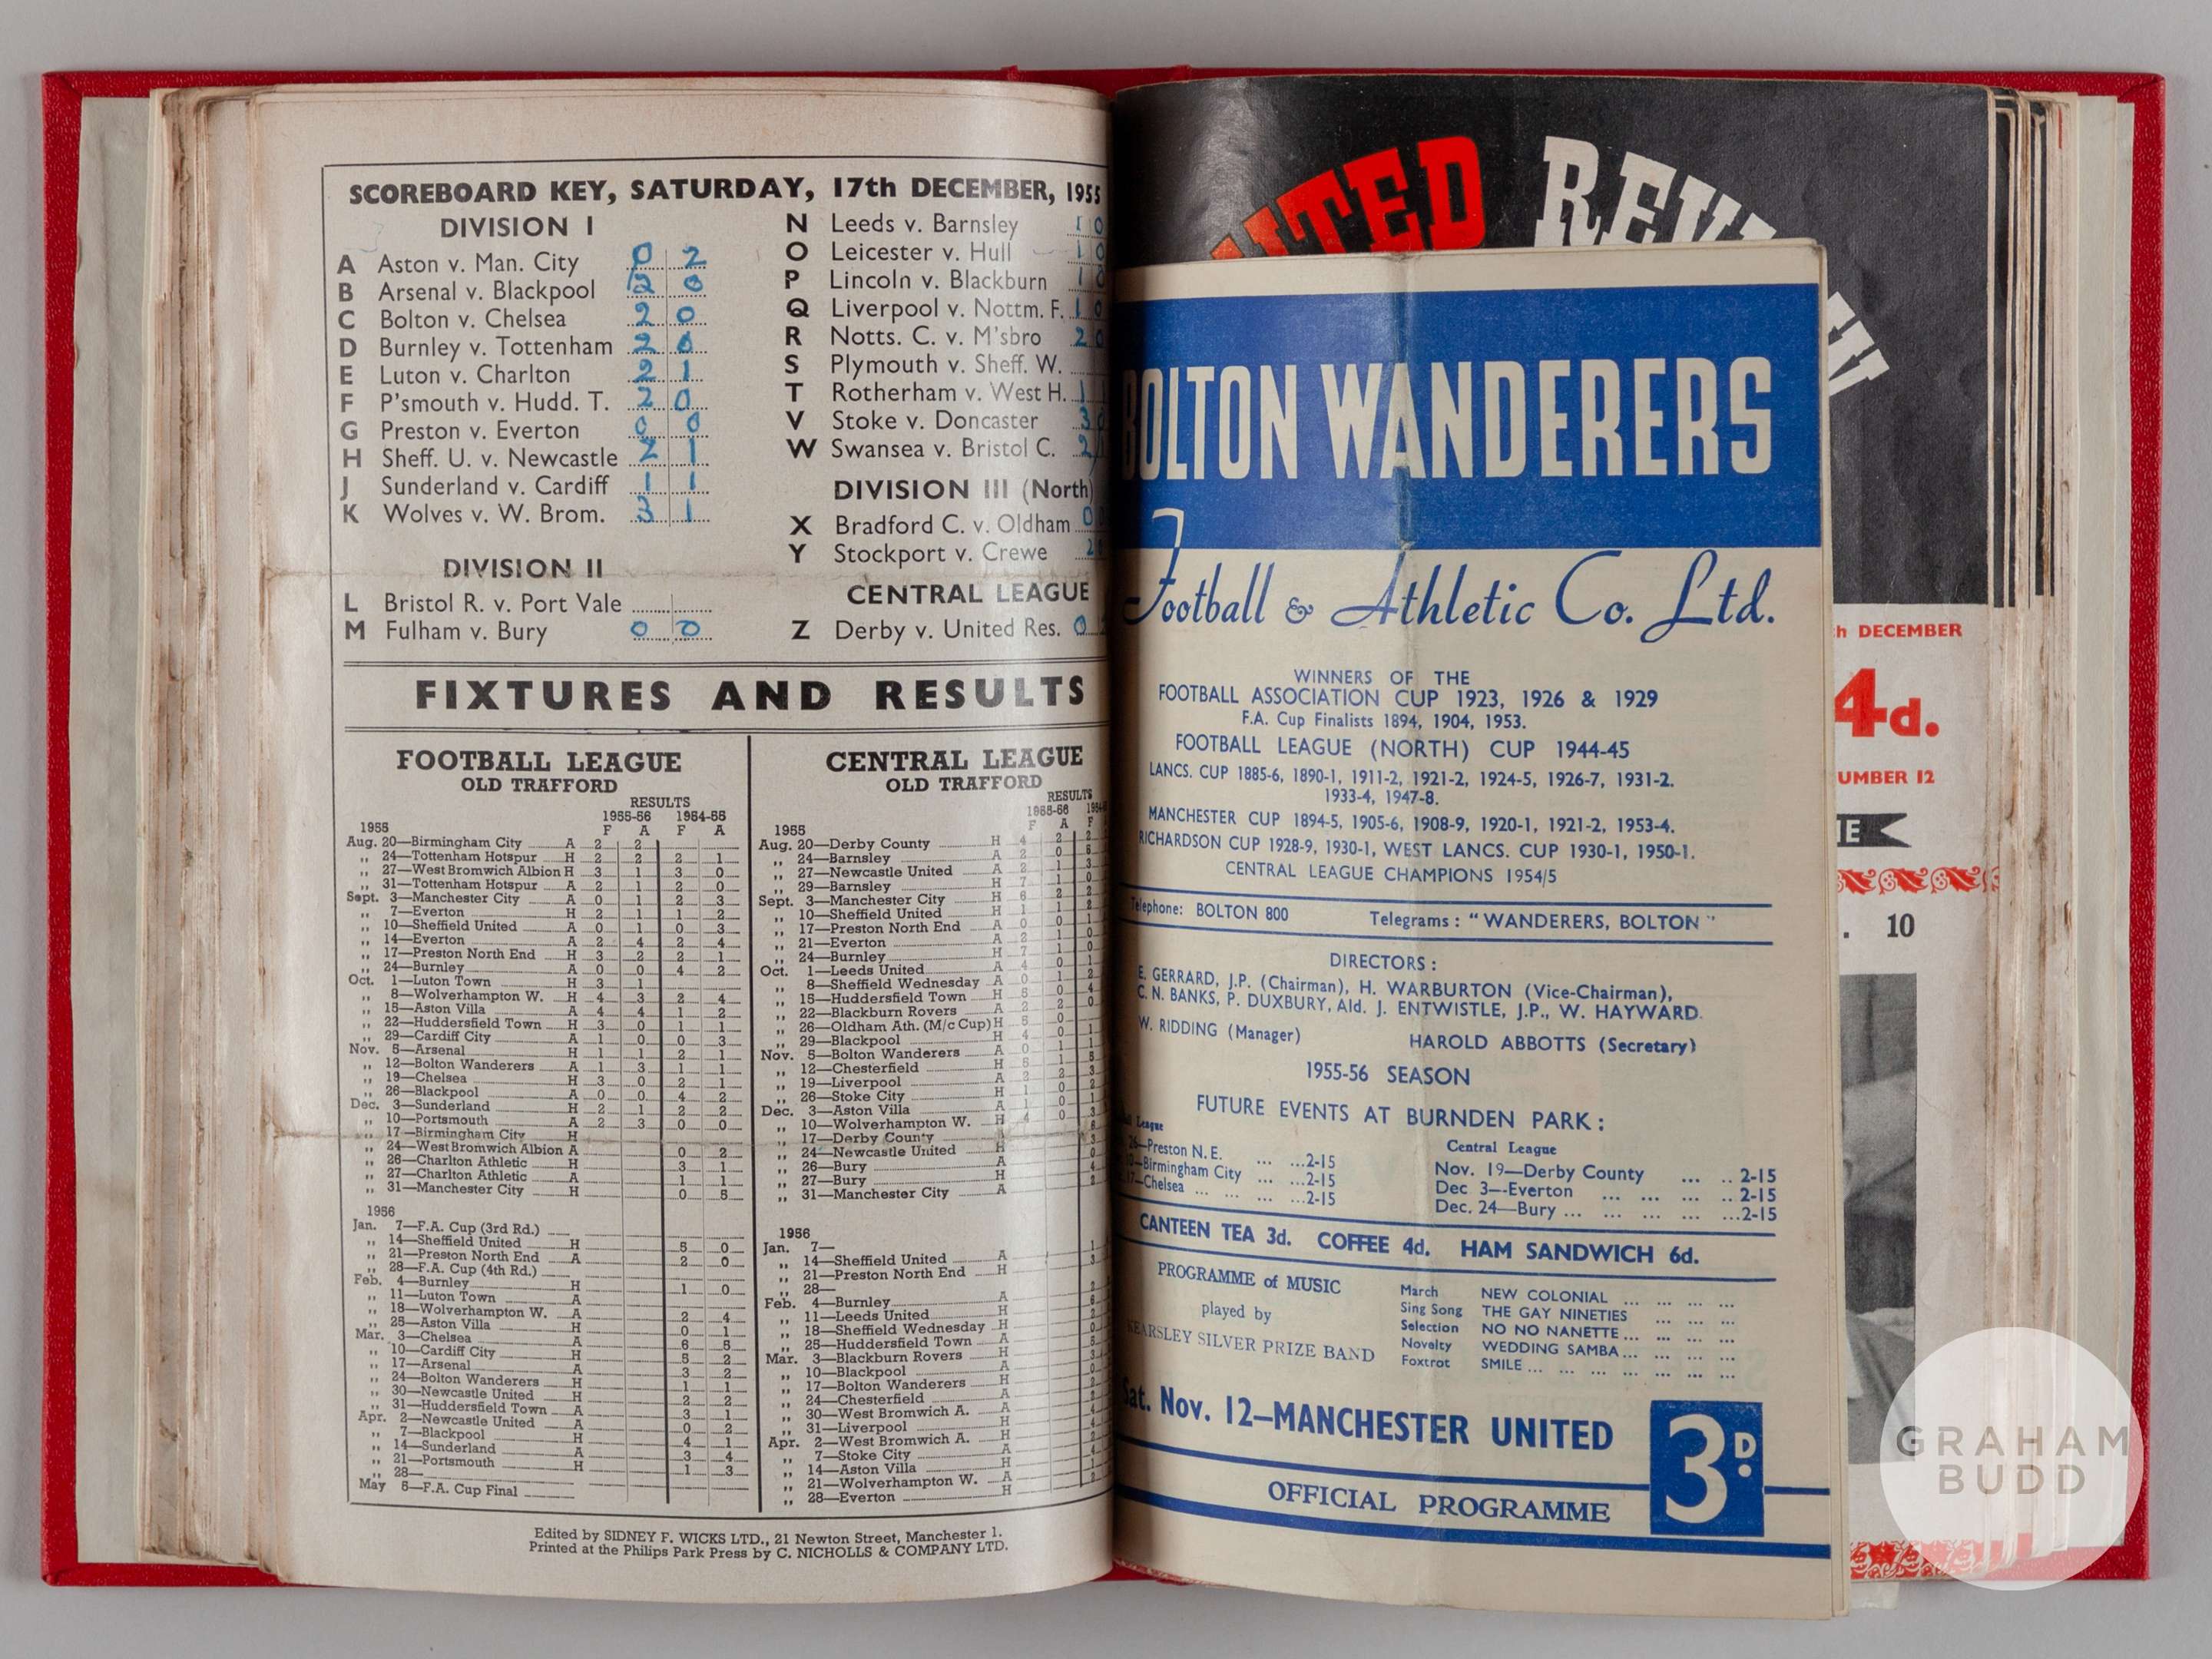 SCOREBOARD KEY, SATURDAY, 17th DECEMBER, 1955
DIVISION I
A Aston v. Man. City 0 2
B Arsenal v. Blackpool 2 0
C Bolton v. Chelsea 2 0
D Burnley v. Tottenham 2 0
E Luton v. Charlton 2 1
F P'smouth v. Hudd. T. 2 0
G Preston v. Everton 0 0
H Sheff. U. v. Newcastle 2 1
J Sunderland v. Cardiff 1 1
K Wolves v. W. Brom. 3 1
DIVISION II
L Bristol R. v. Port Vale
M Fulham v. Bury 0 0
N Leeds v. Barnsley 1 0
O Leicester v. Hull 1 0
P Lincoln v. Blackburn 1 0
Q Liverpool v. Nottm. F. 1 0
R Notts. C. v. M'sbro 2 0
S Plymouth v. Sheff. W.
T Rotherham v. West H. 1 1
V Stoke v. Doncaster 3 0
W Swansea v. Bristol C. 2
DIVISION III (North)
X Bradford C. v. Oldham 0
Y Stockport v. Crewe 2
CENTRAL LEAGUE
Z Derby v. United Res. 0
FIXTURES AND RESULTS
FOOTBALL LEAGUE
OLD TRAFFORD
RESULTS
1955-56 1954-55
1955 F A F A
Aug. 20—Birmingham City A 2 2
,, 24—Tottenham Hotspur H 2 2 2 1
,, 27—West Bromwich Albion H 3 1 3 0
,, 31—Tottenham Hotspur A 2 1 2 0
Sept. 3—Manchester City A 0 1 2 3
,, 7—Everton H 2 1 1 2
,, 10—Sheffield United A 0 1 0 3
,, 14—Everton A 2 4 2 4
,, 17—Preston North End H 3 2 2 1
,, 24—Burnley A 0 0 4 2
Oct. 1—Luton Town H 3 1
,, 8—Wolverhampton W. H 4 3 2 4
,, 15—Aston Villa A 4 4 1 2
,, 22—Huddersfield Town H 3 0 1 1
,, 29—Cardiff City A 1 0 0 3
Nov. 5—Arsenal H 1 1 2 1
,, 12—Bolton Wanderers A 1 3 1 1
,, 19—Chelsea H 3 0 2 1
,, 26—Blackpool A 0 0 4 2
Dec. 3—Sunderland H 2 1 2 2
,, 10—Portsmouth A 2 3 0 0
,, 17—Birmingham City H
,, 24—West Bromwich Albion A 0 2
,, 26—Charlton Athletic H 3 1
,, 27—Charlton Athletic A 1 1
,, 31—Manchester City H 0 5
1956
Jan. 7—F.A. Cup (3rd Rd.)
,, 14—Sheffield United H 5 0
,, 21—Preston North End A 2 0
,, 28—F.A. Cup (4th Rd.)
Feb. 4—Burnley H 1 0
,, 11—Luton Town A
,, 18—Wolverhampton W. A 2 4
,, 25—Aston Villa H 0 1
Mar. 3—Chelsea A 6 5
,, 10—Cardiff City H 5 2
,, 17—Arsenal A 3 2
,, 24—Bolton Wanderers H 1 1
,, 30—Newcastle United H 2 2
,, 31—Huddersfield Town A 3 1
Apr. 2—Newcastle United A 0 2
,, 7—Blackpool H 4 1
,, 14—Sunderland A 3 4
,, 21—Portsmouth H 1 3
,, 28—
May 5—F.A. Cup Final
CENTRAL LEAGUE
OLD TRAFFORD
RESULTS
1955-56
1955 F A F
Aug. 20—Derby County H 4 2 2
,, 24—Barnsley A 2 0
,, 27—Newcastle United A 2 1 3
,, 29—Barnsley H 7 1 0
Sept. 3—Manchester City H 6 2 2
,, 10—Sheffield United H 1 1 2
,, 17—Preston North End A 0 0 1
,, 21—Everton A 2 1 0
,, 24—Burnley H 7 1 0
Oct. 1—Leeds United A 4 0 1
,, 8—Sheffield Wednesday A 0 1 2
,, 15—Huddersfield Town H 5 0 4
,, 22—Blackburn Rovers A 2 2 0
,, 26—Oldham Ath. (M/c Cup) H 5 0
,, 29—Blackpool H 4 0 1
Nov. 5—Bolton Wanderers A 0 1 1
,, 12—Chesterfield H 5 1 5
,, 19—Liverpool A 2 2 3
,, 26—Stoke City H 1 0 2
Dec. 3—Aston Villa A 1 0 1
,, 10—Wolverhampton W. H 4 0 3
,, 17—Derby County A
,, 24—Newcastle United H
,, 26—Bury A
,, 27—Bury H
,, 31—Manchester City A
1956
Jan. 7—
,, 14—Sheffield United A
,, 21—Preston North End H
,, 28—
Feb. 4—Burnley A
,, 11—Leeds United H
,, 18—Sheffield Wednesday H
,, 25—Huddersfield Town A
Mar. 3—Blackburn Rovers H
,, 10—Blackpool A
,, 17—Bolton Wanderers H
,, 24—Chesterfield A
,, 30—West Bromwich A. A
,, 31—Liverpool H
Apr. 2—West Bromwich A. H
,, 7—Stoke City A
,, 14—Aston Villa H
,, 21—Wolverhampton W. A
,, 28—Everton H
Edited by SIDNEY F. WICKS LTD., 21 Newton Street, Manchester 1.
Printed at the Philips Park Press by C. NICHOLLS & COMPANY LTD.
BOLTON WANDERERS
Football & Athletic Co. Ltd.
WINNERS OF THE
FOOTBALL ASSOCIATION CUP 1923, 1926 & 1929
F.A. Cup Finalists 1894, 1904, 1953.
FOOTBALL LEAGUE (NORTH) CUP 1944-45
LANCS. CUP 1885-6, 1890-1, 1911-2, 1921-2, 1924-5, 1926-7, 1931-2.
1933-4, 1947-8.
MANCHESTER CUP 1894-5, 1905-6, 1908-9, 1920-1, 1921-2, 1953-4.
RICHARDSON CUP 1928-9, 1930-1, WEST LANCS. CUP 1930-1, 1950-1.
CENTRAL LEAGUE CHAMPIONS 1954/5
Telephone: BOLTON 800 Telegrams: "WANDERERS, BOLTON"
DIRECTORS:
E. GERRARD, J.P. (Chairman), H. WARBURTON (Vice-Chairman),
C. N. BANKS, P. DUXBURY, Ald. J. ENTWISTLE, J.P., W. HAYWARD.
W. RIDDING (Manager) HAROLD ABBOTTS (Secretary)
1955-56 SEASON
FUTURE EVENTS AT BURNDEN PARK:
League
—Preston N.E. ... ...2-15
—Birmingham City ... ...2-15
—Chelsea ... ... ... ...2-15
Central League
Nov. 19—Derby County ... .. 2-15
Dec 3—Everton ... ... ... .. 2-15
Dec. 24—Bury ... ... ... ... ...2-15
CANTEEN TEA 3d. COFFEE 4d. HAM SANDWICH 6d.
PROGRAMME of MUSIC
played by
KEARSLEY SILVER PRIZE BAND
March NEW COLONIAL ... ... ... ...
Sing Song THE GAY NINETIES ... ... ...
Selection NO NO NANETTE ... ... ... ...
Novelty WEDDING SAMBA ... ... ... ...
Foxtrot SMILE ... ... ... ... ... ... ...
Sat. Nov. 12—MANCHESTER UNITED
3D.
OFFICIAL PROGRAMME
ITED REVIEW
h DECEMBER
4d.
UMBER 12
. 10
GRAHAM
BUDD